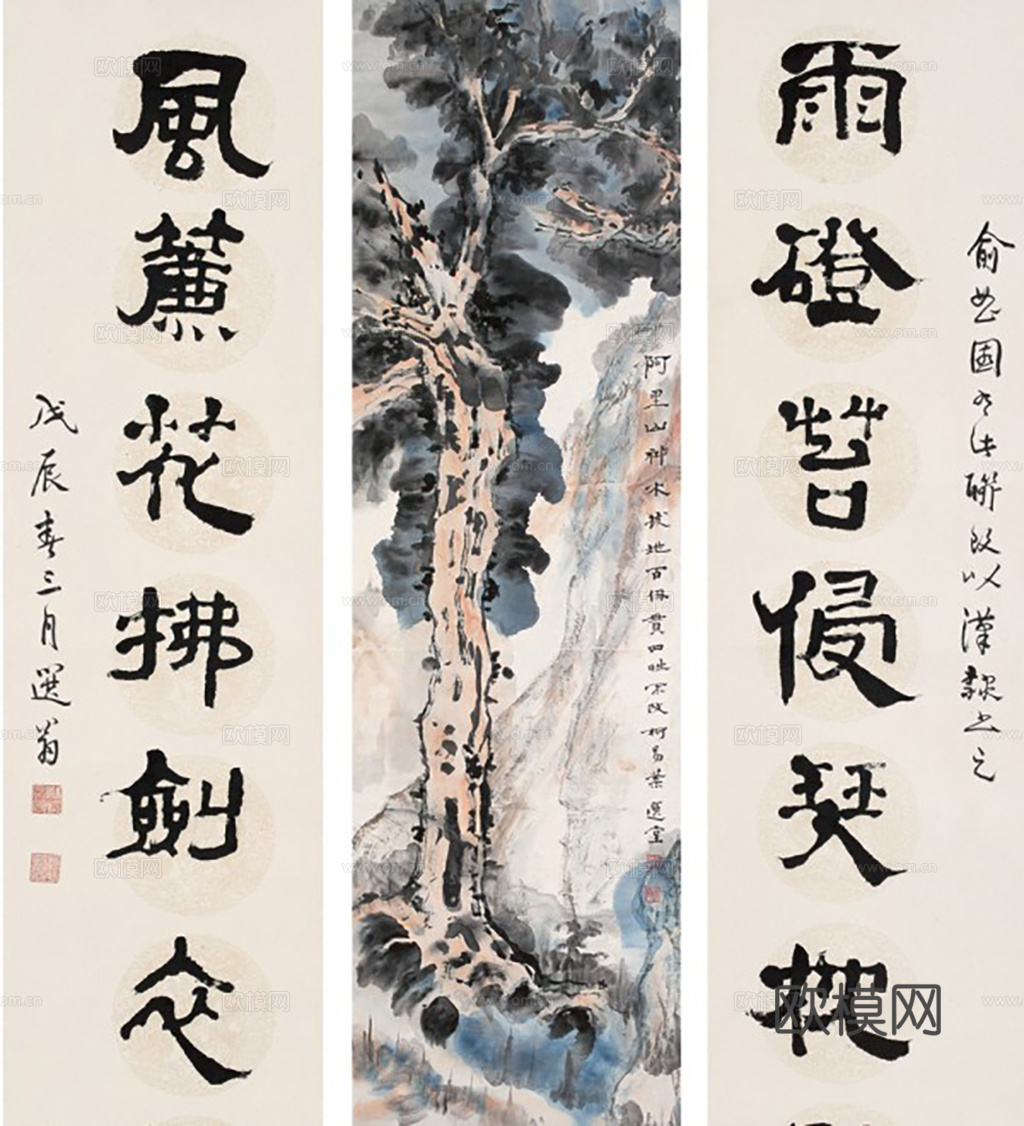 俞曲園有此聯改以漢隸書之
雨磴苔侵琴
阿里山神木拔地百尋貫四時不改柯易葉 選堂
風簾花拂劍衣
戊辰春三月選翁
欧模网
www.om.cn